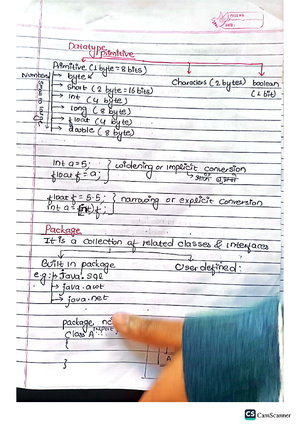 PAGE NO.
DATE:
Datatype
primitive
Primitive (1 byte = 8 bits)
Number
byte
short (2 byte = 16 bits)
int (4 byte)
long (8 byte)
float (4 byte)
double (8 byte)
Characters (2 bytes)
boolean
(1 bit)
int a = 5;
float f = a;
widening or implicit conversion
float f = 5.5;
int a = (int) f;
narrowing or explicit conversion
Package
It is a collection of related classes & interfaces
Built in package
User defined:
e.g: java.sql
java.awt
java.net
package
class A
{
}
A
CS CamScanner